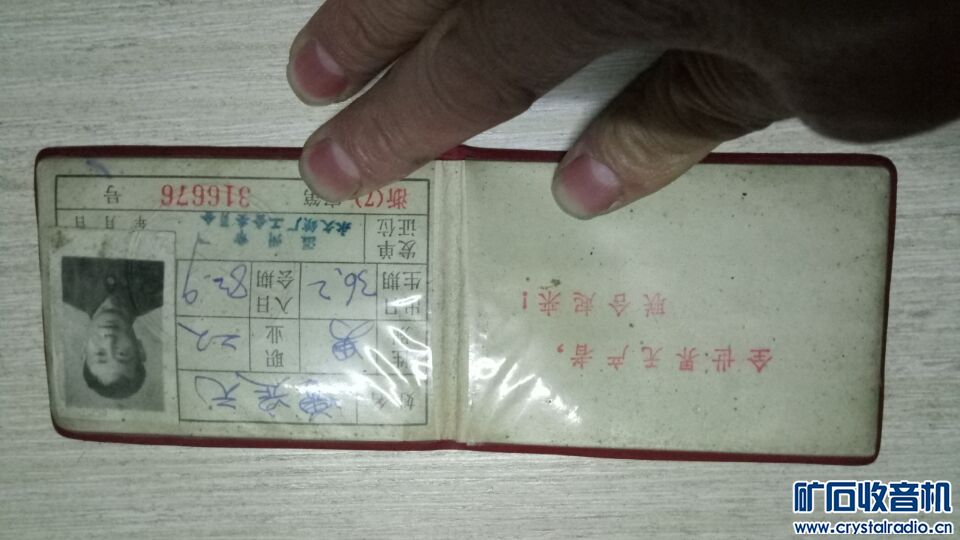 全世界无产者，
联合起来！
姓名
性别 男 职业
出生日期 36.2 入会日期 82.9
发证单位 温州市
永久锁厂工会委员会
年 月 日
浙(7)字第 316676 号
矿石收音机
www.crystalradio.cn